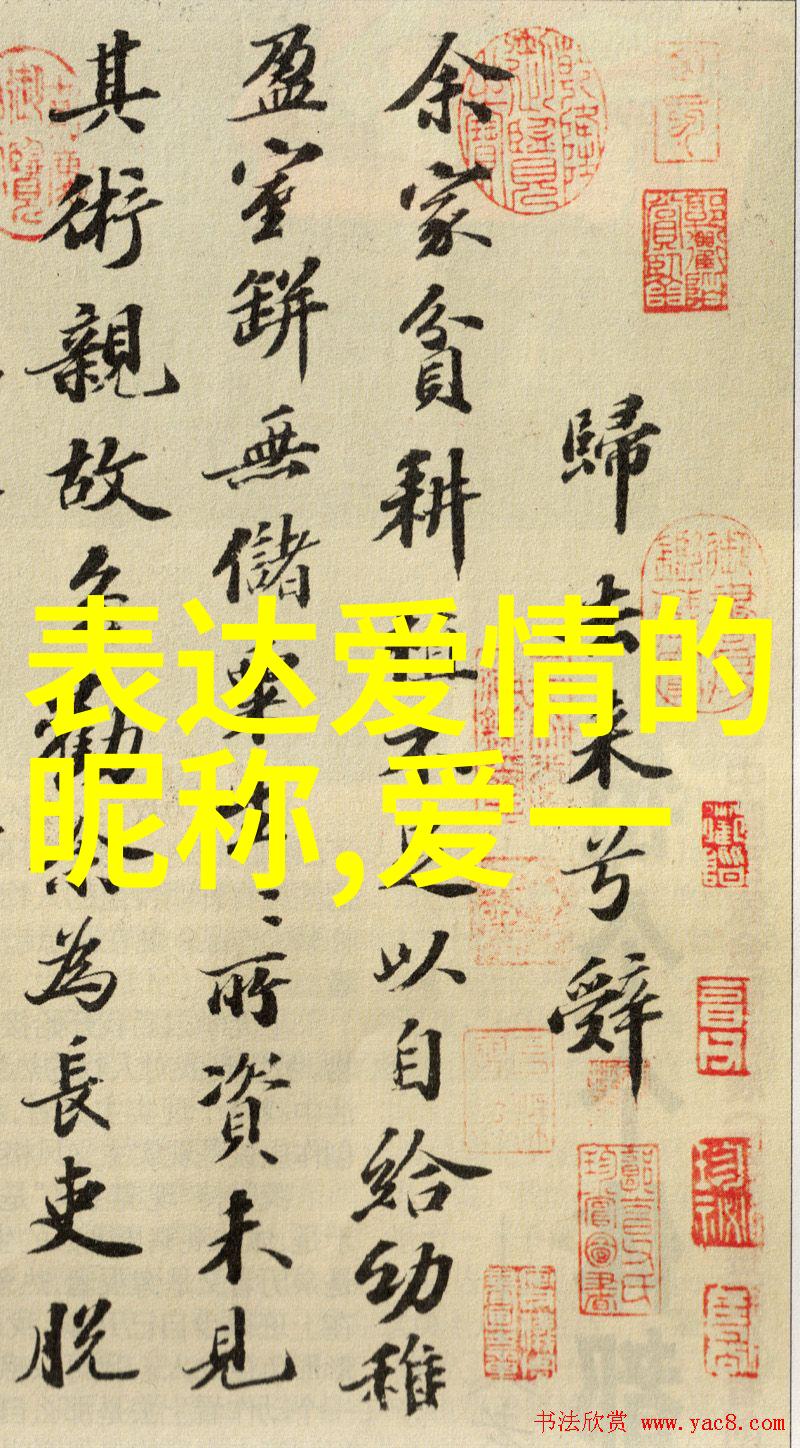 歸去來兮辭
余家貧耕植不足以自給幼稚
盈室缾無儲粟生〻所資未見
其術親故多勸余為長吏脫
表达爱情的
昵称,爱一
书法欣赏 www.yac8.com